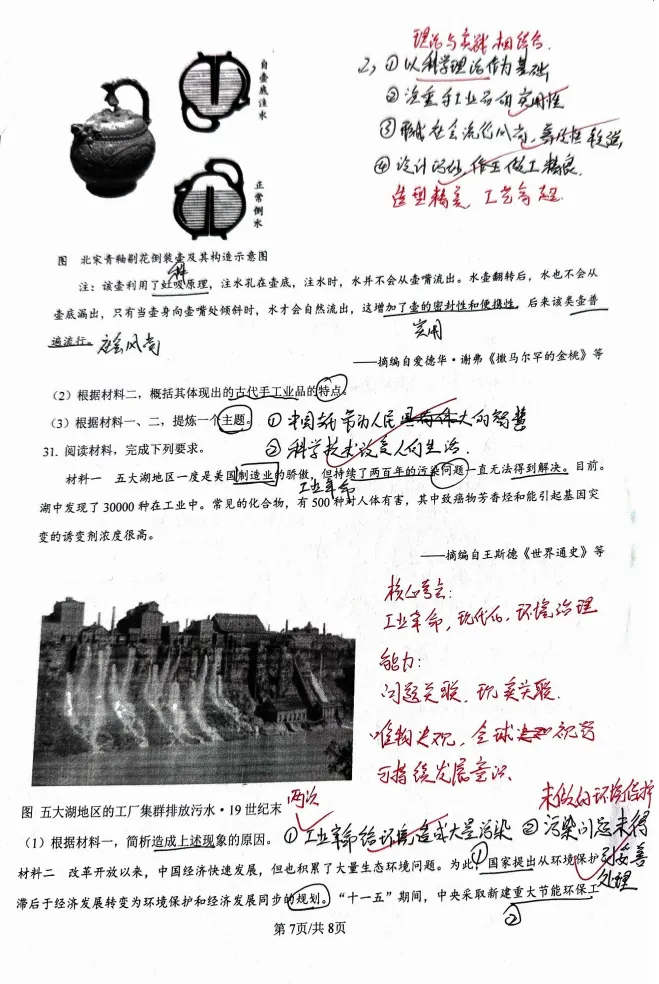 自壶底注水
正常倒水
理论与实践相结合.
2, ①以科学理论作为基础
②注重手工业品的实用性
③形成社会流行风尚, 普及性较强,
④设计巧妙, 作工做工精良.
造型精美, 工艺高超.
图 北宋青釉剔花倒装壶及其构造示意图
科
注：该壶利用了虹吸原理，注水孔在壶底，注水时，水并不会从壶嘴流出。水壶翻转后，水也不会从
壶底漏出，只有当壶身向壶嘴处倾斜时，水才会自然流出，这增加了壶的密封性和便携性，后来该类壶普
遍流行。
实用
——摘编自爱德华·谢弗《撒马尔罕的金桃》等
（2）根据材料二，概括其体现出的古代手工业品的特点。
（3）根据材料一、二，提炼一个主题。 ①中国古代劳动人民具有伟大的智慧
31. 阅读材料，完成下列要求。 ②科学技术改变人们生活.
材料一 五大湖地区一度是美国制造业的骄傲，但持续了两百年的污染问题一直无法得到解决。目前。
工业革命
湖中发现了 30000 种在工业中。常见的化合物，有 500 种对人体有害，其中致癌物芳香烃和能引起基因突
变的诱变剂浓度很高。
——摘编自王斯德《世界通史》等
核心考点:
工业革命, 现代化, 环境治理
能力:
问题关联, 现实关联.
唯物史观, 全球视野
可持续发展意识.
图 五大湖地区的工厂集群排放污水·19 世纪末
两次
未做好环境保护
（1）根据材料一，简析造成上述现象的原因。 ①工业革命给环境造成大量污染 ②污染问题未得
到妥善处理
材料二 改革开放以来，中国经济快速发展，但也积累了大量生态环境问题。为此，①国家提出从环境保护
滞后于经济发展转变为环境保护和经济发展同步的规划。“十一五”期间，中央采取新建重大节能环保工
②
第 7页/共 8页